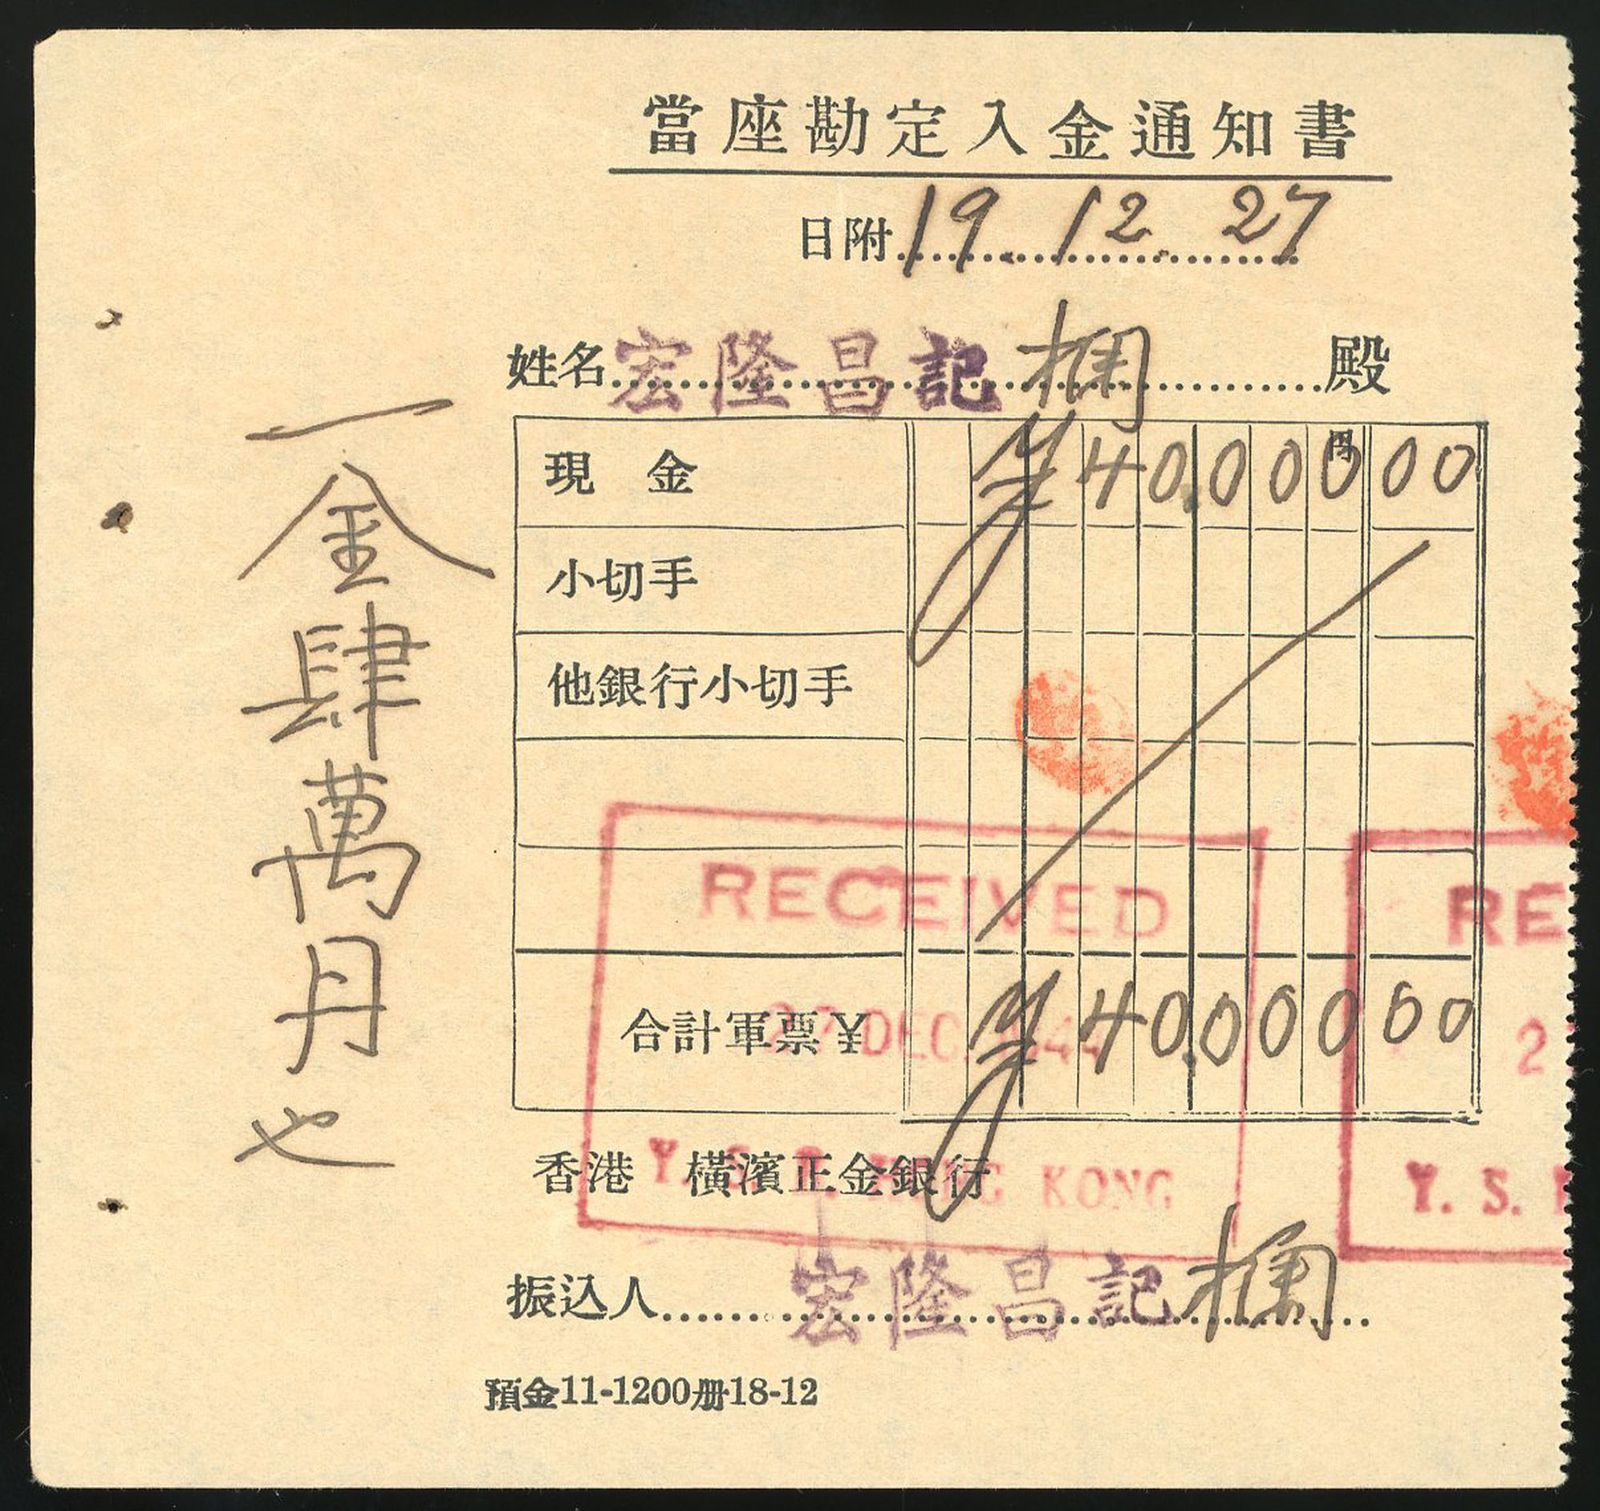 當座勘定入金通知書
日附 19. 12. 27
姓名 宏隆昌記 欄 殿
現金 ¥40,000 00
円
小切手
他銀行小切手
RECEIVED
RE
合計軍票¥ ¥40,000 00
DEC. 44
2
香港 橫濱正金銀行
Y. S. KONG
Y. S.
振込人 宏隆昌記 欄
預金11-1200册18-12
一金肆萬円也